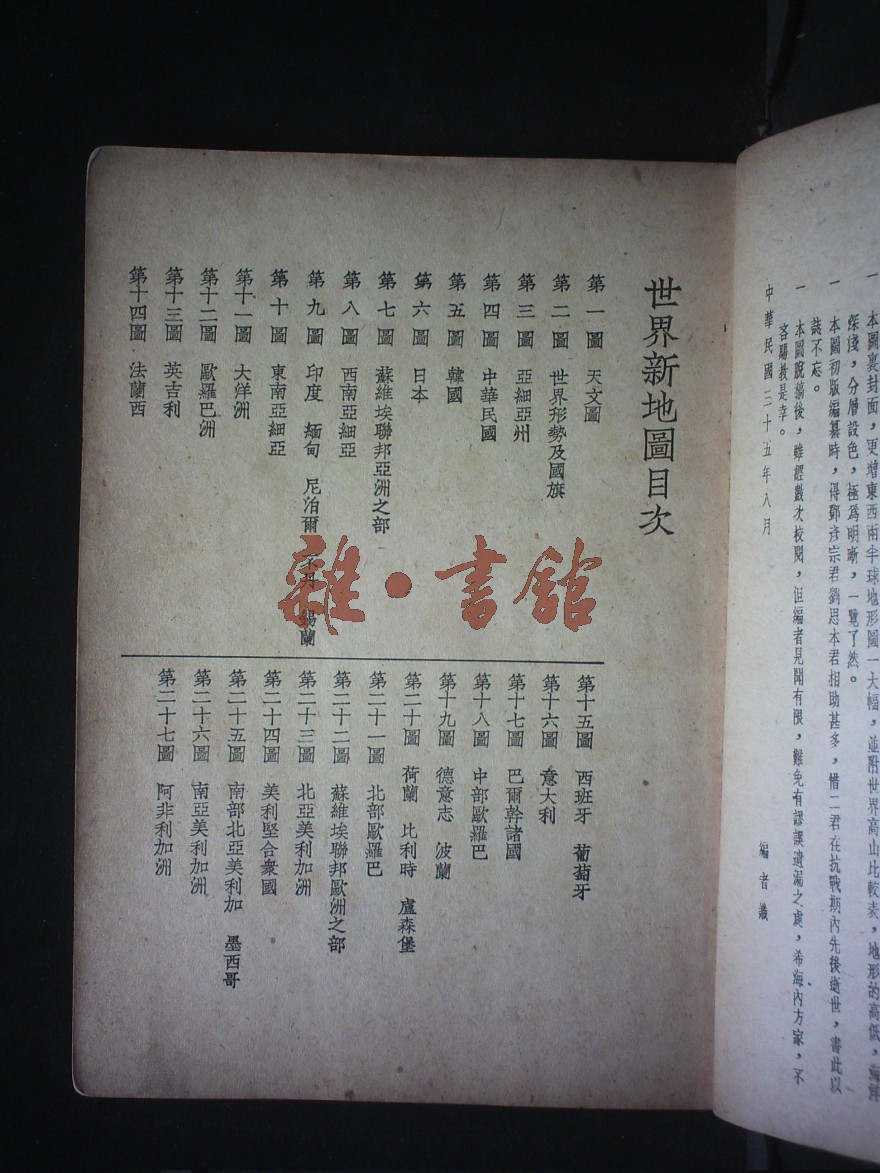 一 本圖裏封面，更增東西兩半球地形圖一大幅，並附世界高山比較表，地形的高低，海洋
深淺，分層設色，極爲明晰，一覽了然。
一 本圖初版編纂時，得鄭彥宗君劉思本君相助甚多，惜二君在抗戰期內先後逝世，書此以
誌不忘。
一 本圖脫稿後，雖經數次校閱，但編者見聞有限，難免有謬誤遺漏之處，希海內方家，不
吝賜教是幸。
中華民國三十五年八月
編者識
世界新地圖目次
第一圖 天文圖
第二圖 世界形勢及國旗
第三圖 亞細亞州
第四圖 中華民國
第五圖 韓國
第六圖 日本
第七圖 蘇維埃聯邦亞洲之部
第八圖 西南亞細亞
第九圖 印度 緬甸 尼泊爾 不丹 錫蘭
第十圖 東南亞細亞
第十一圖 大洋洲
第十二圖 歐羅巴洲
第十三圖 英吉利
第十四圖 法蘭西
第十五圖 西班牙 葡萄牙
第十六圖 意大利
第十七圖 巴爾幹諸國
第十八圖 中部歐羅巴
第十九圖 德意志 波蘭
第二十圖 荷蘭 比利時 盧森堡
第二十一圖 北部歐羅巴
第二十二圖 蘇維埃聯邦歐洲之部
第二十三圖 北亞美利加洲
第二十四圖 美利堅合衆國
第二十五圖 南部北亞美利加 墨西哥
第二十六圖 南亞美利加洲
第二十七圖 阿非利加洲
雜·書館